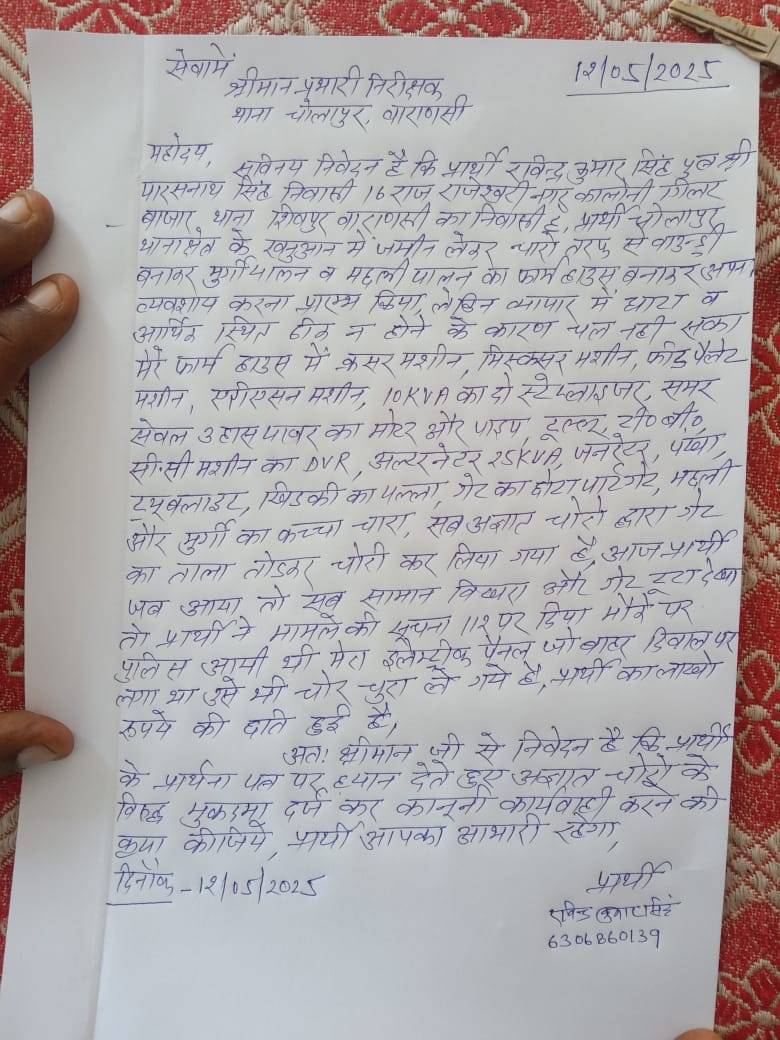 सेवामें
12/05/2025
श्रीमान प्रभारी निरीक्षक
थाना चोलापुर, वाराणसी
महोदय,
सविनय निवेदन है कि प्रार्थी रविन्द्र कुमार सिंह पुत्र श्री
पारसनाथ सिंह निवासी 16 राज राजेश्वरी नगर कालोनी गिलट
बाजार थाना शिवपुर वाराणसी का निवासी हूँ, प्रार्थी चोलापुर
थानाक्षेत्र के में जमीन लेकर चारो तरफ से बाउन्ड्री
बनाकर मुर्गीपालन व मछली पालन का फार्म हाउस बनाकर अपना
व्यवशाय करना प्रारम्भ किया, लेकिन व्यापार में घाटा व
आर्थिक स्थित ठीक न होने के कारण चल नही सका
मेरे फार्म हाउस में क्रसर मशीन, मिक्सर मशीन, फीड पैलेट
मशीन, मशीन, 10KVA का दो स्टेप्लाइजर, समर
सेबल 3 हास पावर का मोटर और पाइप, टूल्लू, टी० बी०,
सी.सी मशीन का DVR, अल्टरनेटर 25KVA, जनरेटर, पंखा,
ट्यूबलाइट, खिडकी का पल्ला, गेट का छोटा पार्ट गेट, मछली
और मुर्गी का कच्चा चारा, सब अज्ञात चोरो द्वारा गेट
का ताला तोडकर चोरी कर लिया गया है, आज प्रार्थी
जब आया तो सब सामान विखरा और गेट टूटा देखा
तो प्रार्थी ने मामले की सूचना 112 पर दिया मौके पर
पुलिस आयी थी मेरा इलेक्ट्रीक पैनल जो बाहर दिवाल पर
लगा था उसे भी चोर चुरा ले गये है, प्रार्थी का लाखो
रुपये की क्षति हुई है,
अतः श्रीमान जी से निवेदन है कि प्रार्थी
के प्रार्थना पत्र पर ध्यान देते हुए अज्ञात चोरो के
विरुद्ध मुकदमा दर्ज कर कानूनी कार्यवाही करने की
कृपा कीजिये, प्रार्थी आपका आभारी रहेगा,
दिनाँक - 12/05/2025
प्रार्थी
रविन्द्र कुमार सिंह
6306860139